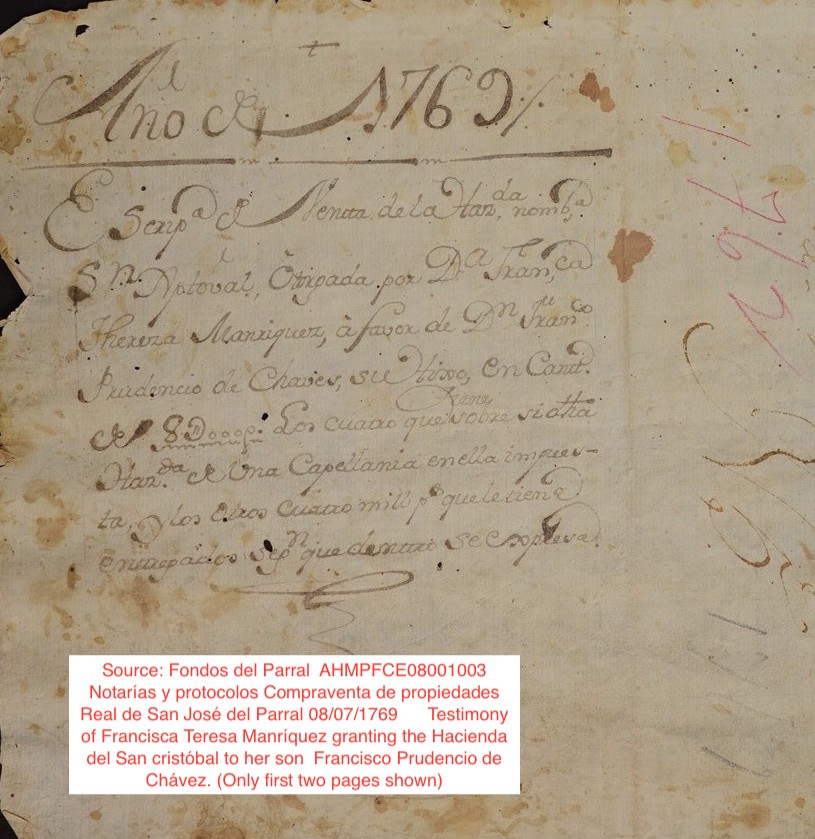 Año de 1769
Escripª de Venta de la Hazda, nombª
Sn Xptoval, Otorgada por Dª Franca
Thereza Manriquez, à favor de Dn Franco
Prudencio de Chaves, su Hixo, en Cantd
de 8D000ps Los cuatro que sobre si dha
tiene
Hazda de Una Capellania en ella impues-
ta, y los otros cuatro mill ps que le tiene
entregados segn que dentro se expresa
1769
Source: Fondos del Parral AHMPFCE08001003
Notarías y protocolos Compraventa de propiedades
Real de San José del Parral 08/07/1769 Testimony
of Francisca Teresa Manríquez granting the Hacienda
del San cristóbal to her son Francisco Prudencio de
Chávez. (Only first two pages shown)